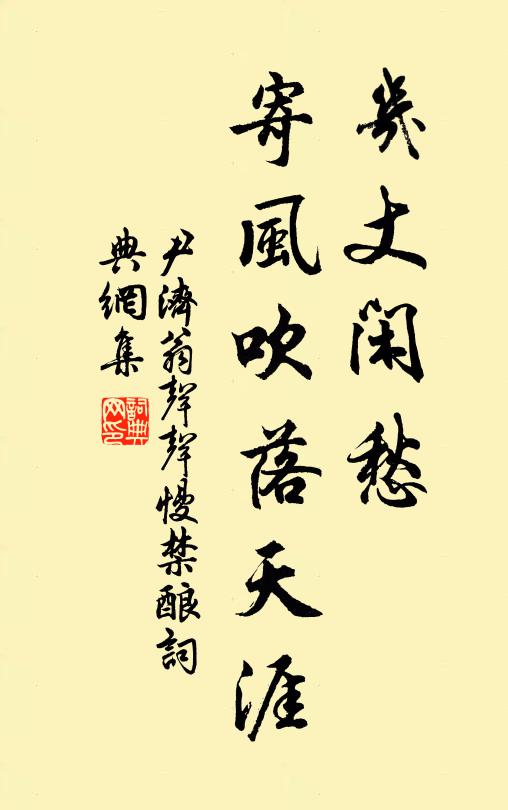 幾丈閑愁
寄風吹落天涯
尹濟翁聲聲慢禁酿詞
典網集
詞典
网印